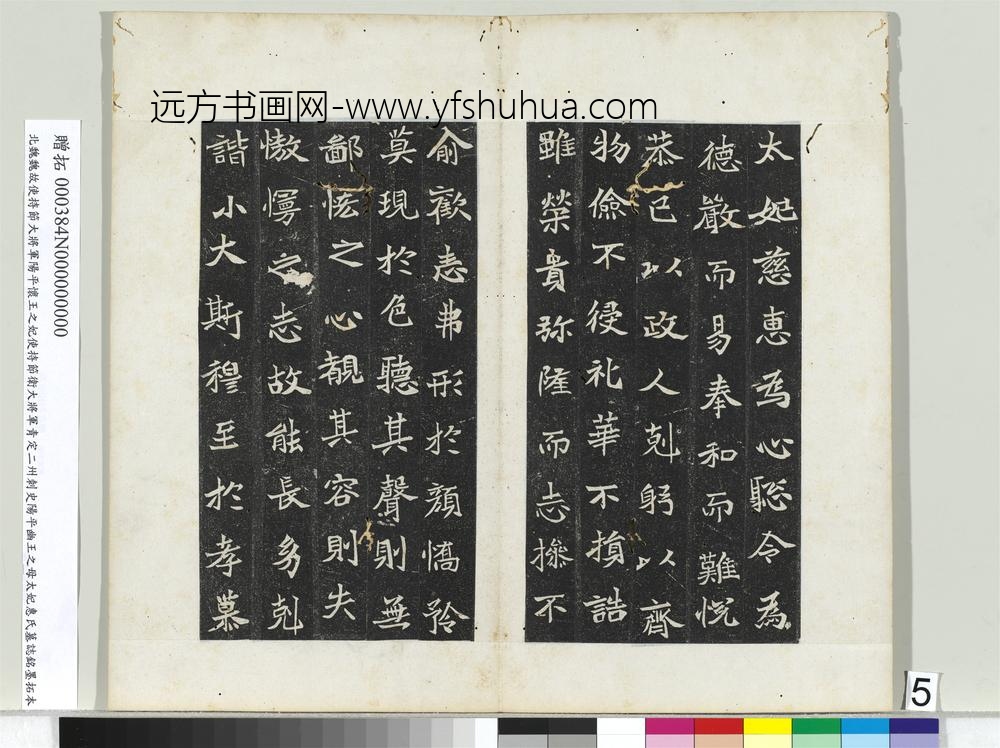 远方书画网-www.yfshuhua.com
太妃慈惠為心聦令為
德嚴而易奉和而難悅
恭己以政人剋躬以齊
物儉不侵礼華不損誥
雖榮貴弥隆而志摻不
俞歡恚弗形於顔憍矜
莫現於色聽其聲則無
鄙悋之心覩其容則失
慠慢之志故能長幼剋
諧小大斯穆至於孝慕
贈拓 000384N000000000
北魏魏故使持節大將軍陽平懷王之妃使持節衛大將軍青定二州刺史陽平幽王之母太妃惠氏墓誌銘墨拓本
5